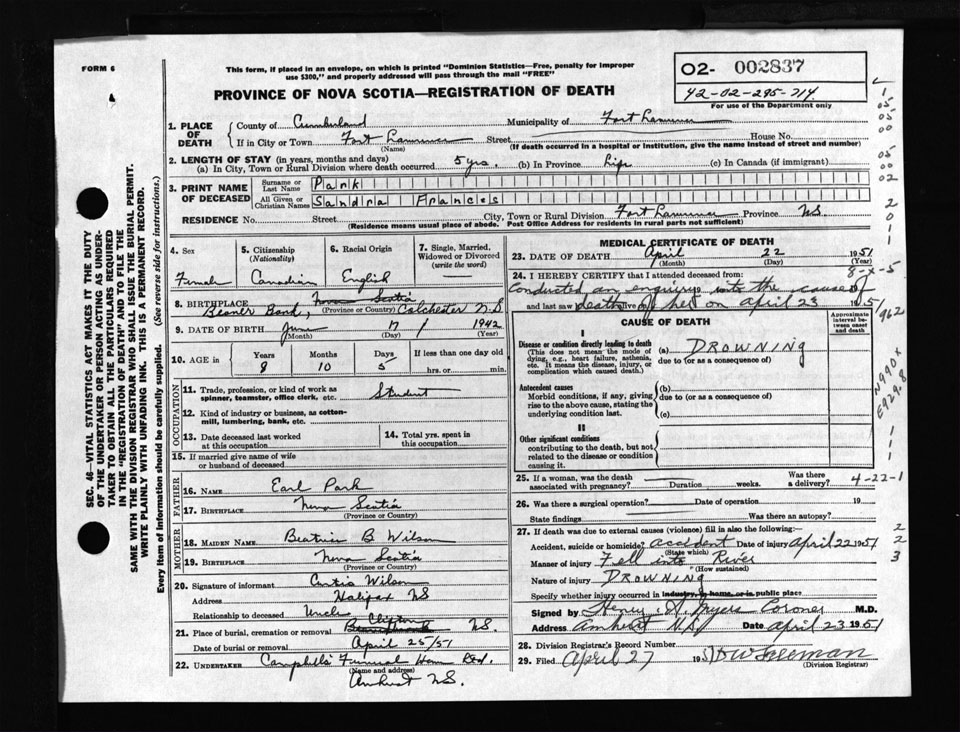 FORM 6
This form, if placed in an envelope, on which is printed "Dominion Statistics—Free, penalty for improper
use $300," and properly addressed will pass through the mail "FREE"
PROVINCE OF NOVA SCOTIA—REGISTRATION OF DEATH
02- 002837
42-02-295-714
For use of the Department only
SEC. 46—VITAL STATISTICS ACT MAKES IT THE DUTY
OF THE UNDERTAKER OR PERSON ACTING AS UNDER-
TAKER TO OBTAIN ALL THE PARTICULARS REQUIRED
IN THE "REGISTRATION OF DEATH" AND TO FILE THE
SAME WITH THE DIVISION REGISTRAR WHO SHALL ISSUE THE BURIAL PERMIT.
WRITE PLAINLY WITH UNFADING INK. THIS IS A PERMANENT RECORD.
Every item of information should be carefully supplied. (See reverse side for instructions.)
1. PLACE OF DEATH
County of Cumberland Municipality of Fort Lawrence
If in City or Town Fort Lawrence Street House No.
(Name) (If death occurred in a hospital or institution, give the name instead of street and number)
2. LENGTH OF STAY (in years, months and days)
(a) In City, Town or Rural Division where death occurred 5 yrs. (b) In Province Life (c) In Canada (if immigrant)
3. PRINT NAME OF DECEASED
Surname or Last Name Park
All Given or Christian Names Sandra Frances
RESIDENCE No. Street City, Town or Rural Division Fort Lawrence Province N.S.
(Residence means usual place of abode. Post Office Address for residents in rural parts not sufficient)
4. Sex
Female
5. Citizenship (Nationality)
Canadian
6. Racial Origin
English
7. Single, Married, Widowed or Divorced (write the word)
8. BIRTHPLACE Nova Scotia
(Province or Country) Colchester N.S.
9. DATE OF BIRTH June 17 1942
(Month) (Day) (Year)
10. AGE in Years Months Days If less than one day old
8 10 5 hrs. or min.
OCCUPATION
11. Trade, profession, or kind of work as
spinner, teamster, office clerk, etc. Student
12. Kind of industry or business, as cotton-
mill, lumbering, bank, etc.
13. Date deceased last worked
at this occupation
14. Total yrs. spent in
this occupation
15. If married give name of wife
or husband of deceased
FATHER
16. NAME Earl Park
17. BIRTHPLACE Nova Scotia
(Province or Country)
MOTHER
18. MAIDEN NAME Beatrice B Wilson
19. BIRTHPLACE Nova Scotia
(Province or Country)
20. Signature of informant Curtis Wilson
Address Halifax NS
Relationship to deceased Uncle
Clifton
21. Place of burial, cremation or removal N.S.
Date of burial or removal April 25/51
22. UNDERTAKER Campbells Funeral Home
(Name and address)
Amherst N.S.
MEDICAL CERTIFICATE OF DEATH
23. DATE OF DEATH April 22 1951
(Month) (Day) (Year)
8-x-5
24. I HEREBY CERTIFY that I attended deceased from:
Conducted an enquiry into the cause of
and last saw death alive of her on April 23 1951
CAUSE OF DEATH
Approximate interval between onset and death
I
Disease or condition directly leading to death
(This does not mean the mode of
dying, e.g., heart failure, asthenia,
etc. It means the disease, injury, or
complication which caused death.)
(a) DROWNING
due to (or as a consequence of)
Antecedent causes
Morbid conditions, if any, giving
rise to the above cause, stating the
underlying condition last.
(b)
due to (or as a consequence of)
(c)
II
Other significant conditions
contributing to the death, but not
related to the disease or condition
causing it.
25. If a woman, was the death
associated with pregnancy? Duration weeks. Was there a delivery? 4-22-1
26. Was there a surgical operation? Date of operation 19
State findings Was there an autopsy?
27. If death was due to external causes (violence) fill in also the following:—
Accident, suicide or homicide? accident Date of injury April 22 1951
(State which)
Manner of injury Fell into River
(How sustained)
Nature of injury DROWNING
Specify whether injury occurred in industry, in home, or in public place
Signed by Henry A. Myers Coroner M.D.
Address Amherst N.S. Date April 23 1951
28. Division Registrar's Record Number
29. Filed April 27 1951
(Division Registrar)
1
05
05
00
05
00
02
2
0
1
1
962
N990X
E929.8
1
1
1
2
2
3